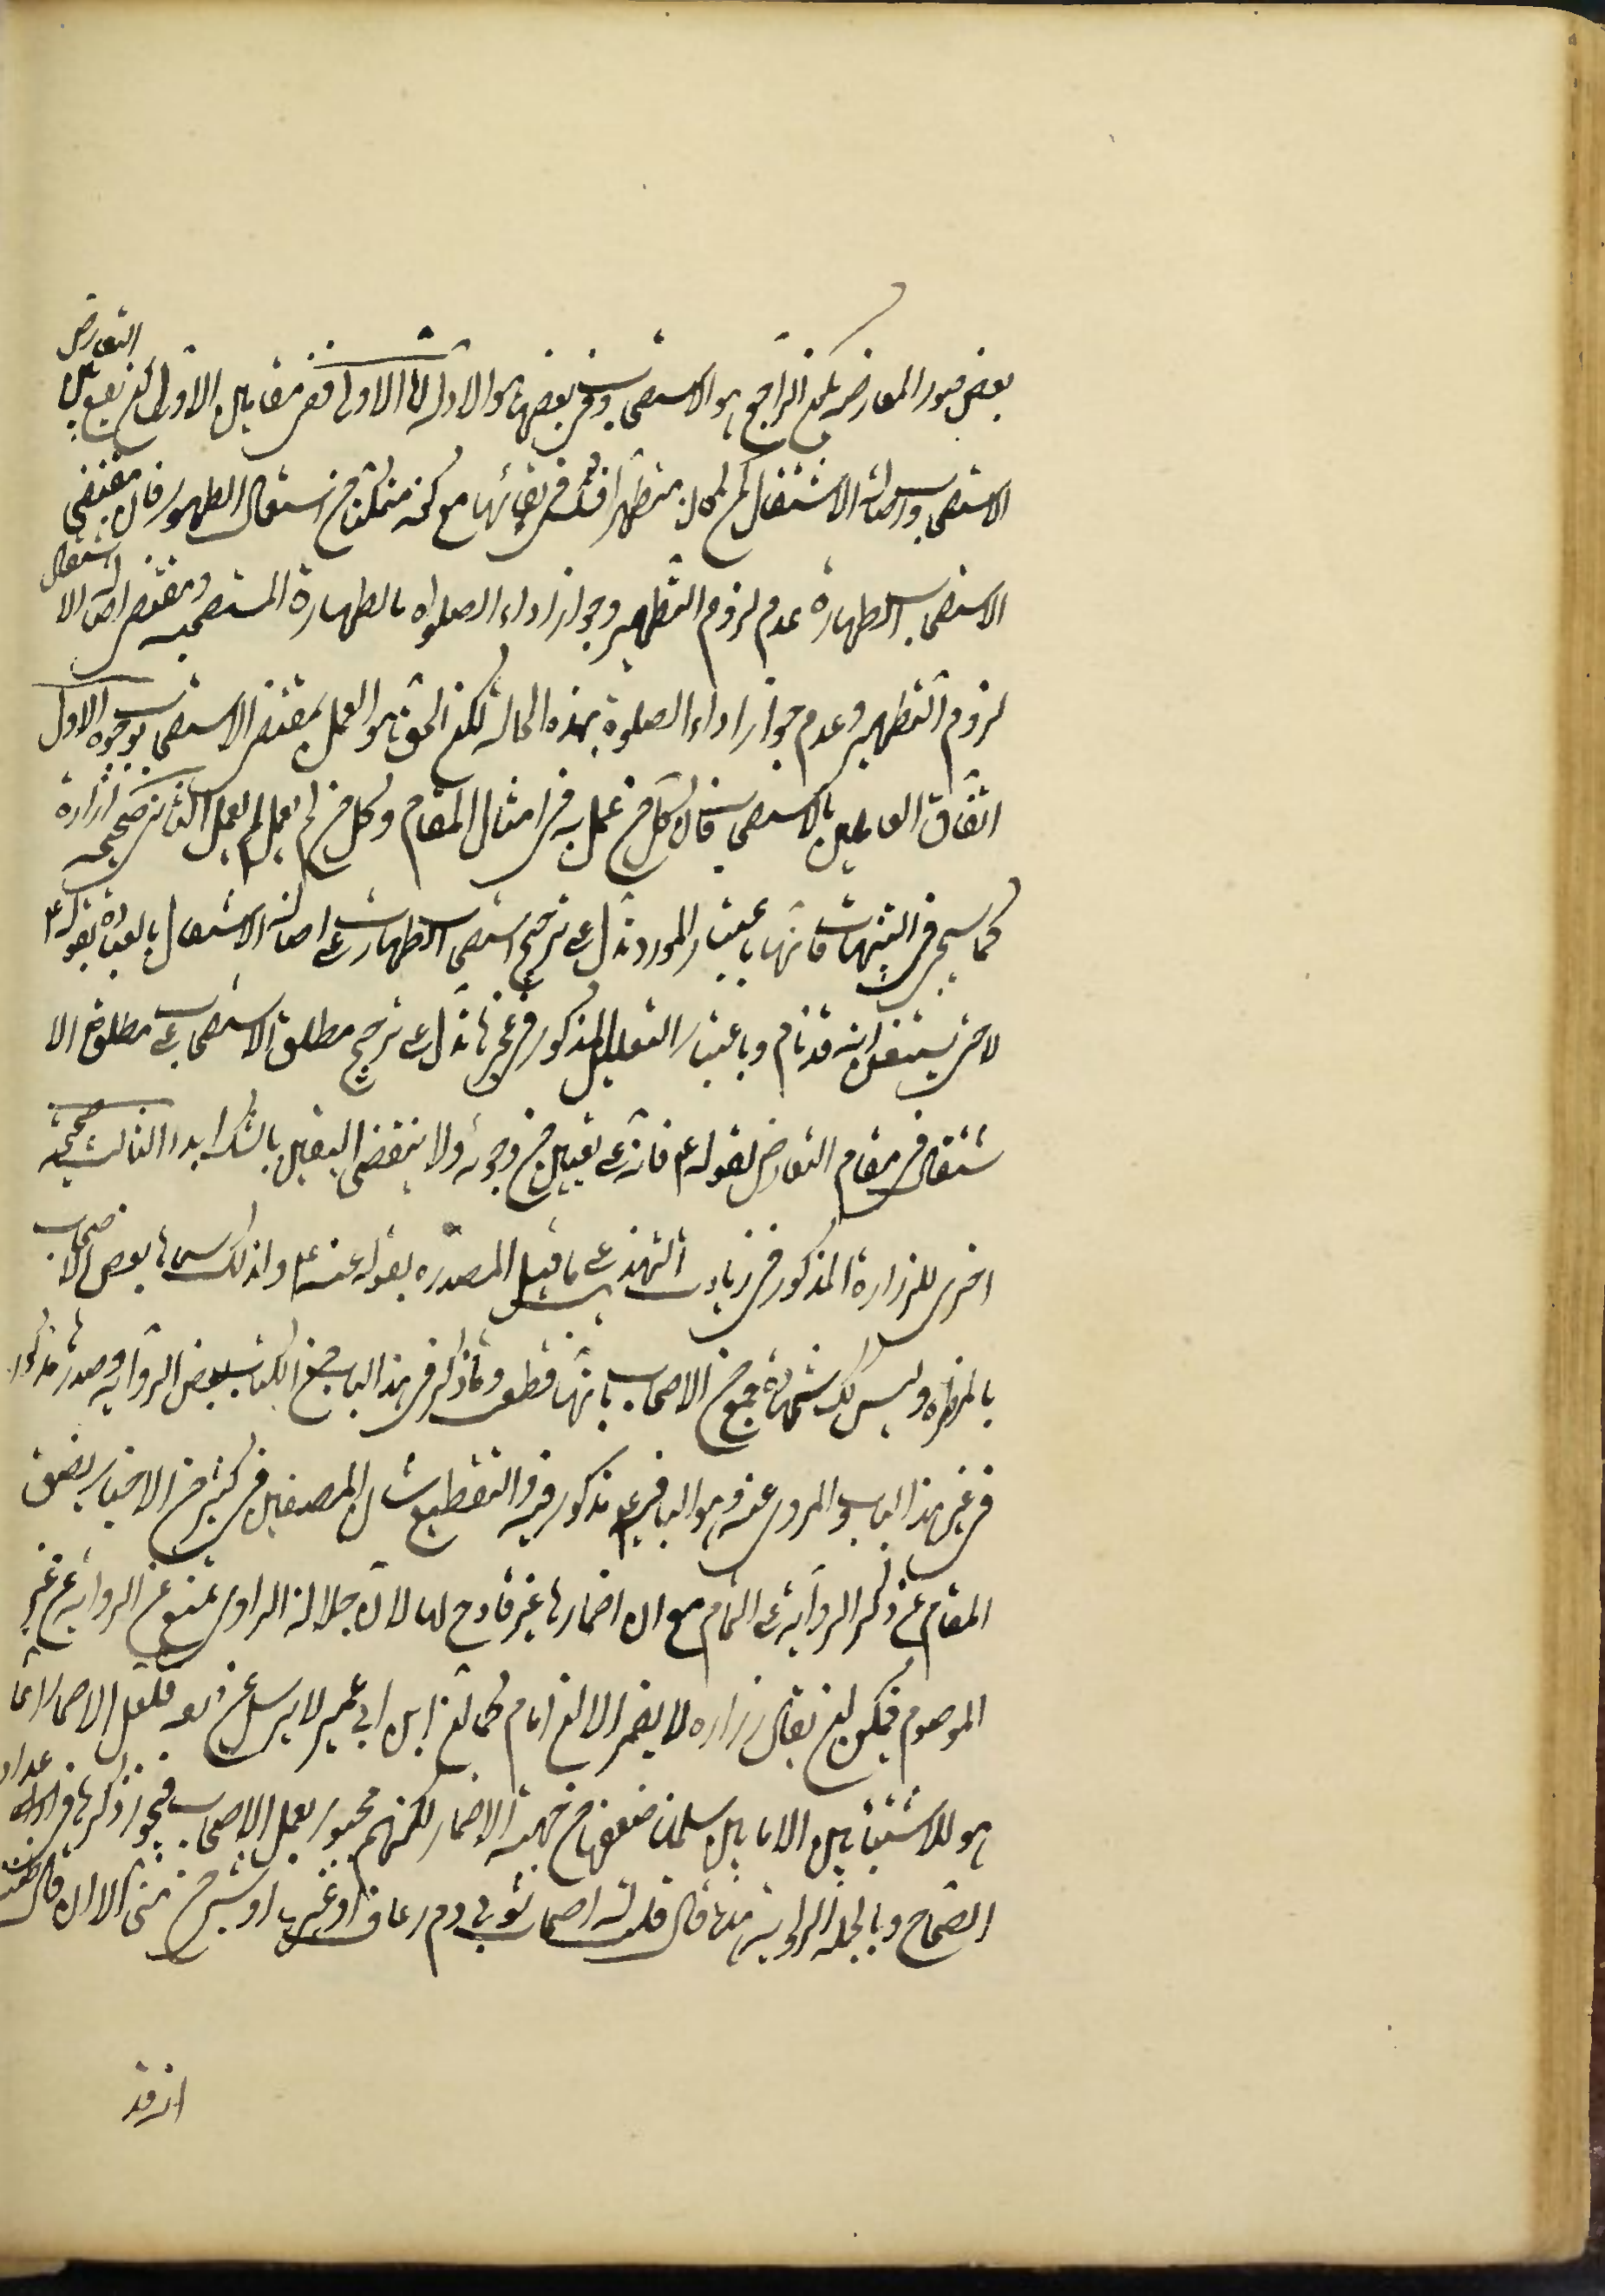 بعض صور المعارضه يكون الراجح هو الاستصحاب وفى بعضها هو الادلة اما الاولى ففى مقابل الاول كون تعويل التعارض
الاستصحاب واصالة الاشتغال كمن كان متطهرا فشك فى بقائها مع كونه متمكنا من استعمال الطهور فان مقتضى
الاستصحاب الطهارة عدم لزوم التطهير وجواز اداء الصلواه بالطهارة المستصحبه ومقتضى اصالة الاشتغال
لزوم التطهير وعدم جواز اداء الصلوة بهذه الحالة لكن الحق هو العمل بمقتضى الاستصحاب بوجوه الاول
اتفاق العاملين بالاستصحاب فان كل من عمل به فى امثال المقام وكل من لم يعمل لم يعمل الثانى صحيحه زرارة
كما سيجئ فى التنبيهات فانها باعتبار المورد تدل على ترجيح استصحاب الطهارت على اصالة الاشتغال بالعباده بقوله ع
لا حتى يستيقن انه قد نام وباعتبار التعليل المذكور فى غيرها تدل على ترجيح مطلق الاستصحاب على مطلق الا
شتغال فى مقام التعارض لقوله ع فانه على يقين من وضوئه ولا ينقض اليقين بالشك ابدا الثالث صحيحة
اخرى للزرارة المذكور فى زيادات التهذيب على ما قيل المصدره بقوله عنه ع ولذلك سماها بعض الاصحاب
بالمضمره وليس كك شهادة جمع من الاصحاب بانها قطعت وما ذكر فى هذا الباب من الكتاب بعض الروايه وصدرها مذكور
فى غير هذا الباب والمروى عنه وهو الباقر ع مذكور فيه والتقطيع شان المصنفين فى كثير من الاخبار يضيق
المقام عن ذكر الرواية على التمام مع ان اضمارها غير قادح لها لان جلالة الراوى تمنع عن الرواية عن غير
المعصوم فيمكن ان يقال زراره لا يضمر الا عن امام كما ان ابن ابى عمير لا يرسل الا عن ثقه فلعل الاضمار انما
هو للاشتباه بين الامامين سلمنا ضعفها من جهة الاضمار لكنهم مجبور بعمل الاصحاب فيجوز ذكرها فى عداد
الصحاح وبالجمله الرواية هذه قال قلت له اصاب ثوبى دم رعاف او غيره او شئ من منى الا ان قال قلت
انه قد